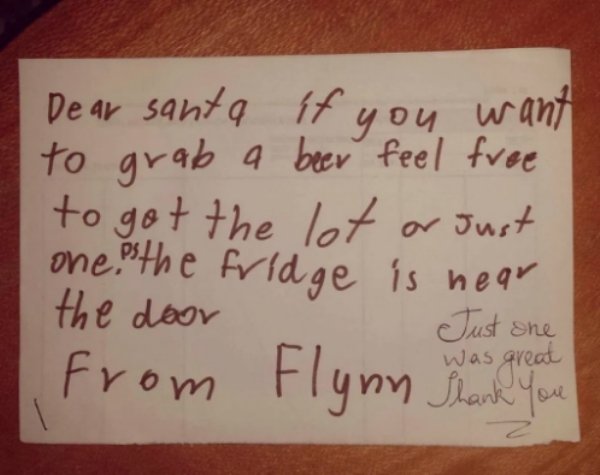 Dear santa if you want
to grab a beer feel free
to get the lot or Just
one. Ps the fridge is near
the door
From Flynn
Just one
was great
Thank You